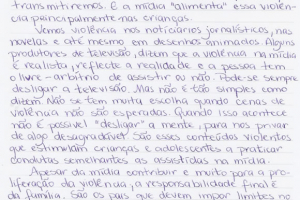 transmitiremos. E a mídia "alimenta" essa violên-
cia principalmente nas crianças.
Vemos violência nos noticiários jornalísticos, nas
novelas e até mesmo em desenhos animados. Alguns
produtores de televisão dizem que a violência na mídia
é realista, reflete a realidade e a pessoa tem
o livre-arbítrio de assistir ou não. Pode-se sempre
desligar a televisão. Mas não é tão simples como
dizem. Não se tem muita escolha quando cenas de
violência não são esperadas. Quando isso acontece
não é possível "desligar" a mente, para nos privar
de algo desagradável. São esses conteúdos violentos
que estimulam crianças e adolescentes a praticar
condutas semelhantes as assistidas na mídia.
Apesar da mídia contribuir e muito para a pro-
liferação da violência, a responsabilidade final é
da família. São os pais que devem impor limites no